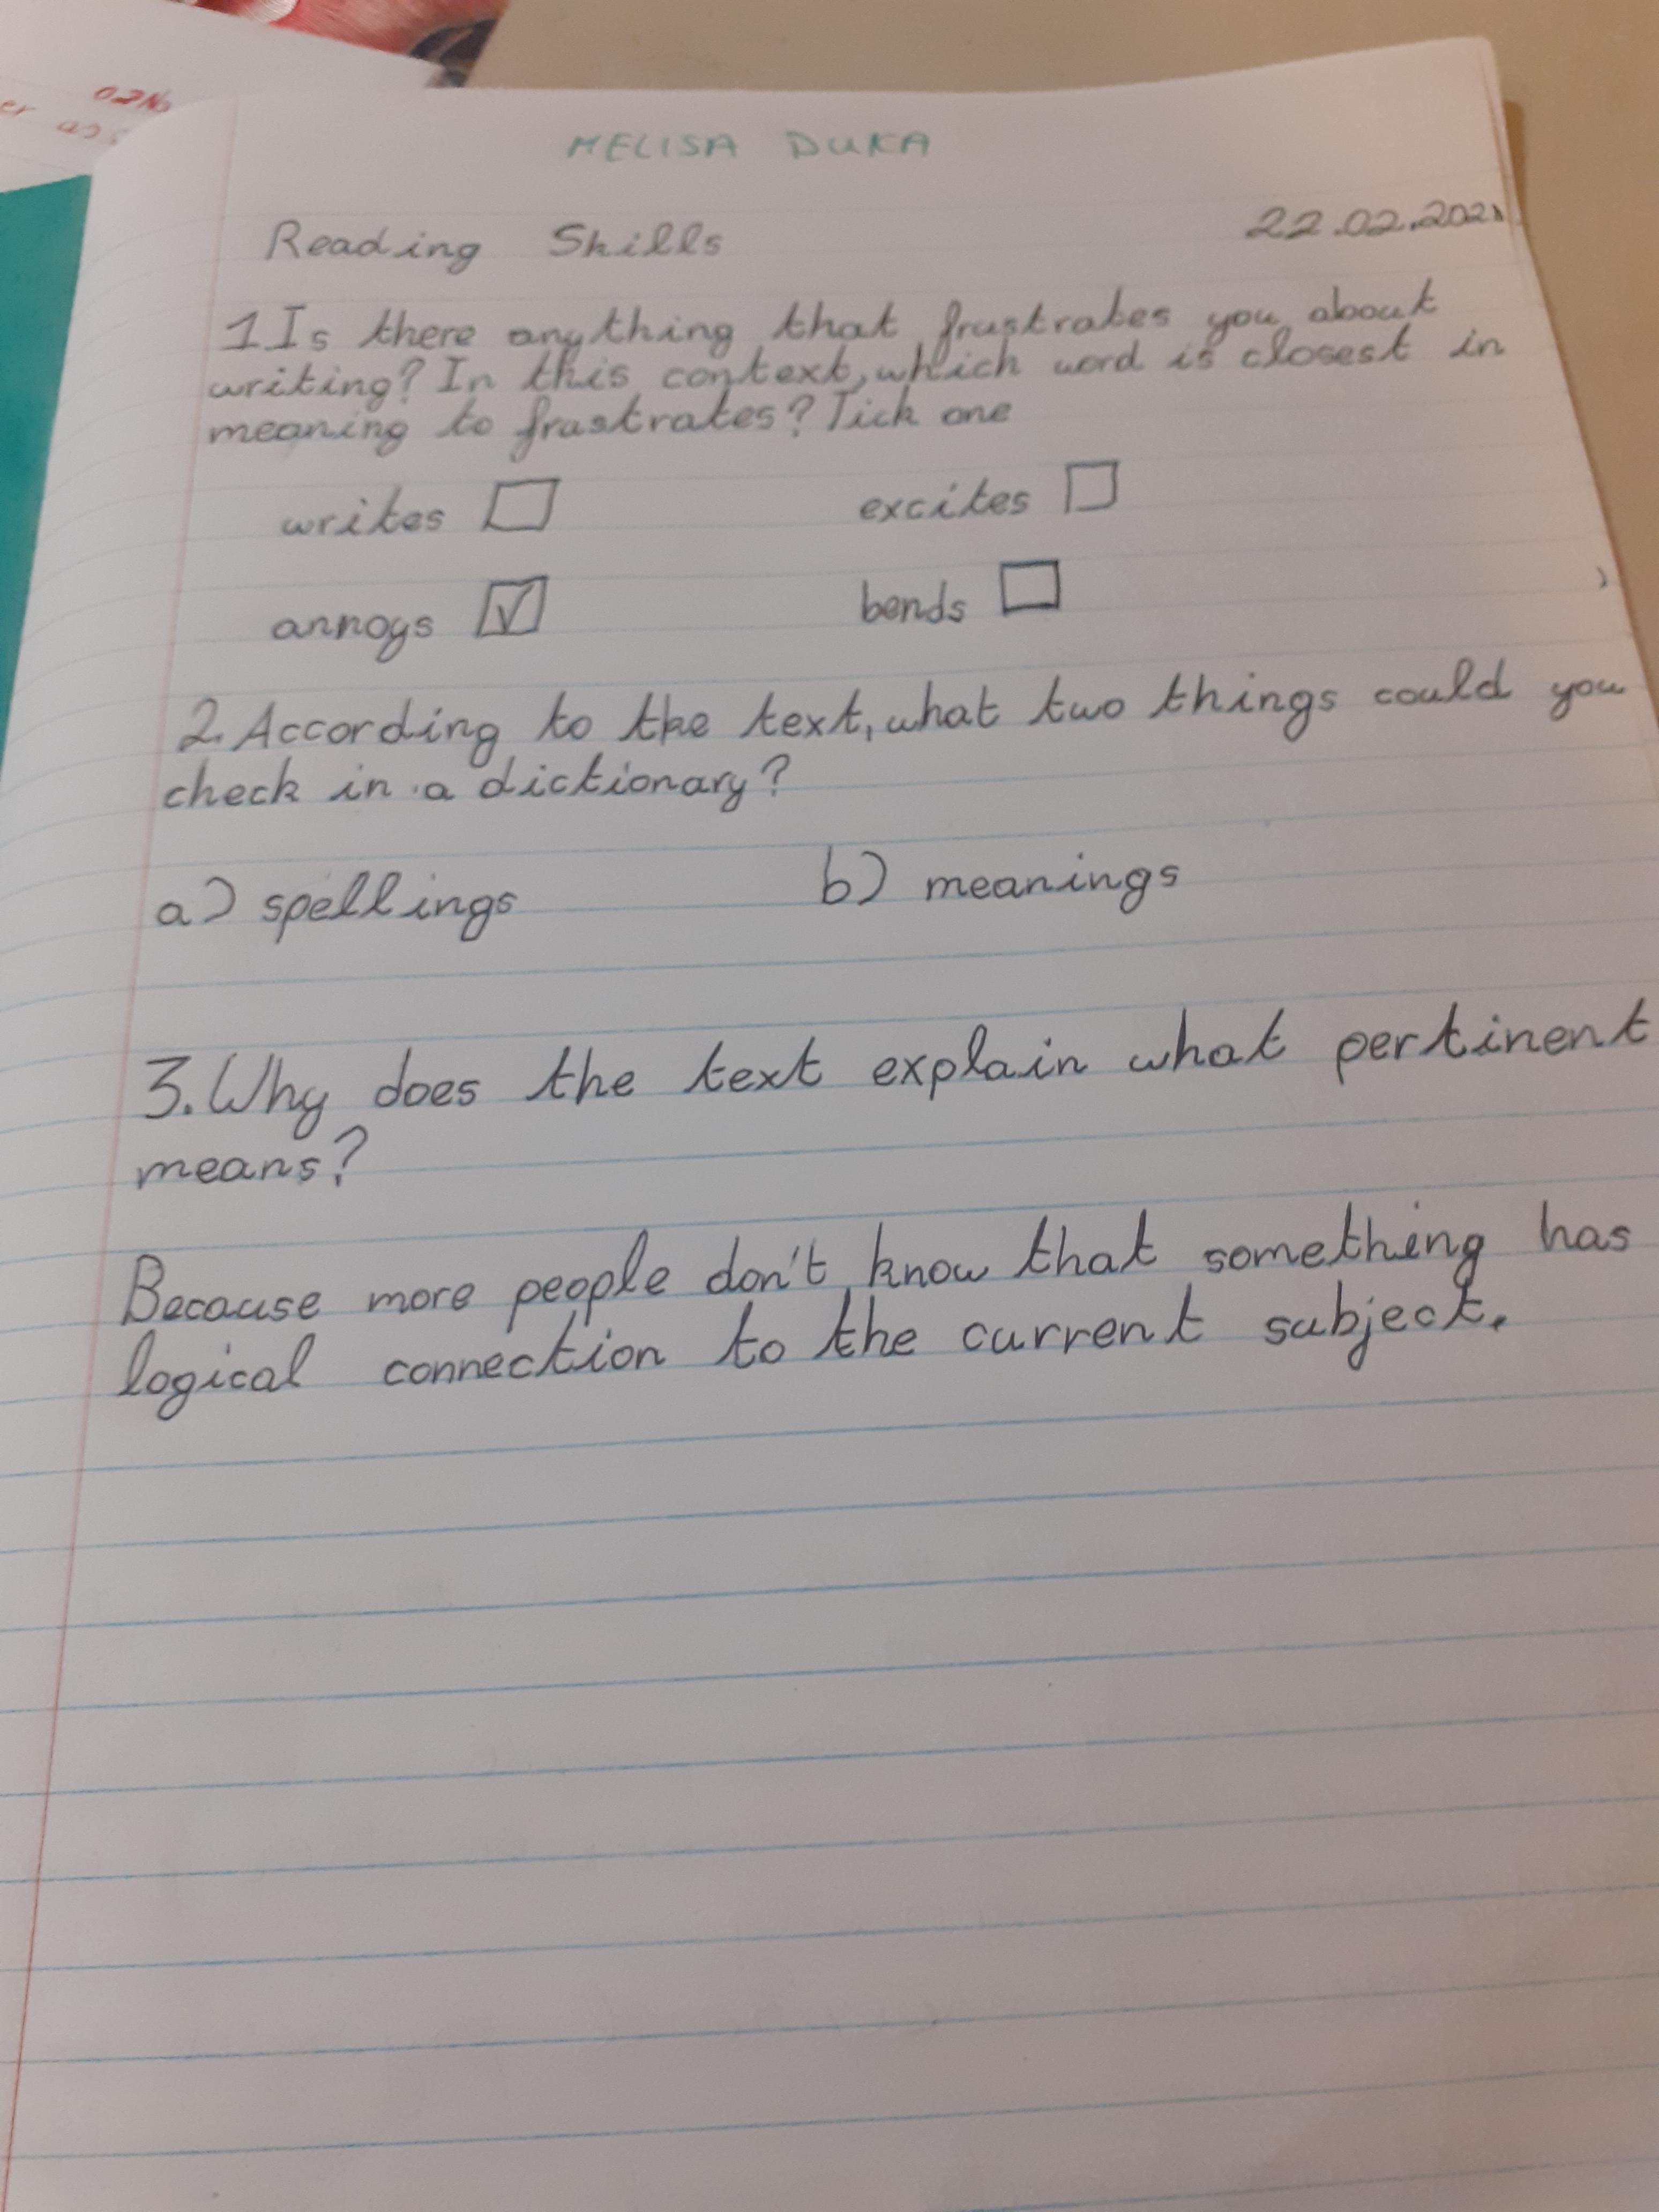 MELISA DUKA
Reading Skills 22.02.2021
1.Is there anything that frustrates you about
writing? In this context, which word is closest in
meaning to frustrates? Tick one
writes excites
annoys bends
2. According to the text, what two things could you
check in a dictionary?
a) spellings b) meanings
3. Why does the text explain what pertinent
means?
Because more people don't know that something has
logical connection to the current subject.